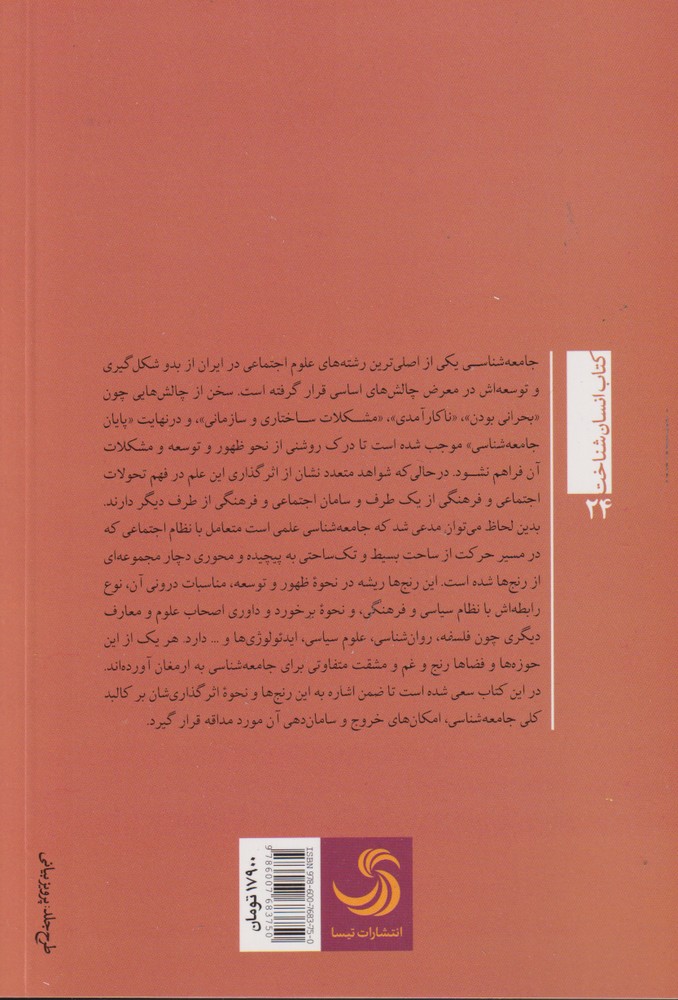 کتاب انسان‌شناخت
۲۴
جامعه‌شناسی یکی از اصلی‌ترین رشته‌های علوم اجتماعی در ایران از بدو شکل‌گیری
و توسعه‌اش در معرض چالش‌های اساسی قرار گرفته است. سخن از چالش‌هایی چون
«بحرانی بودن»، «ناکارآمدی»، «مشکلات ساختاری و سازمانی»، و درنهایت «پایان
جامعه‌شناسی» موجب شده است تا درک روشنی از نحو ظهور و توسعه و مشکلات
آن فراهم نشود. درحالی‌که شواهد متعدد نشان از اثرگذاری این علم در فهم تحولات
اجتماعی و فرهنگی از یک طرف و سامان اجتماعی و فرهنگی از طرف دیگر دارند.
بدین لحاظ می‌توان مدعی شد که جامعه‌شناسی علمی است متعامل با نظام اجتماعی که
در مسیر حرکت از ساحت بسیط و تک‌ساحتی به پیچیده و محوری دچار مجموعه‌ای
از رنج‌ها شده است. این رنج‌ها ریشه در نحوهٔ ظهور و توسعه، مناسبات درونی آن، نوع
رابطه‌اش با نظام سیاسی و فرهنگی، و نحوهٔ برخورد و داوری اصحاب علوم و معارف
دیگری چون فلسفه، روان‌شناسی، علوم سیاسی، ایدئولوژی‌ها و ... دارد. هر یک از این
حوزه‌ها و فضاها رنج و غم و مشقت متفاوتی برای جامعه‌شناسی به ارمغان آورده‌اند.
در این کتاب سعی شده است تا ضمن اشاره به این رنج‌ها و نحوهٔ اثرگذاری‌شان بر کالبد
کلی جامعه‌شناسی، امکان‌های خروج و سامان‌دهی آن مورد مداقه قرار گیرد.
انتشارات تیسا
ISBN 978-600-7683-75-0
9786007683750
۱۷۹۰۰ تومان
طرح جلد: پرویز بیانی